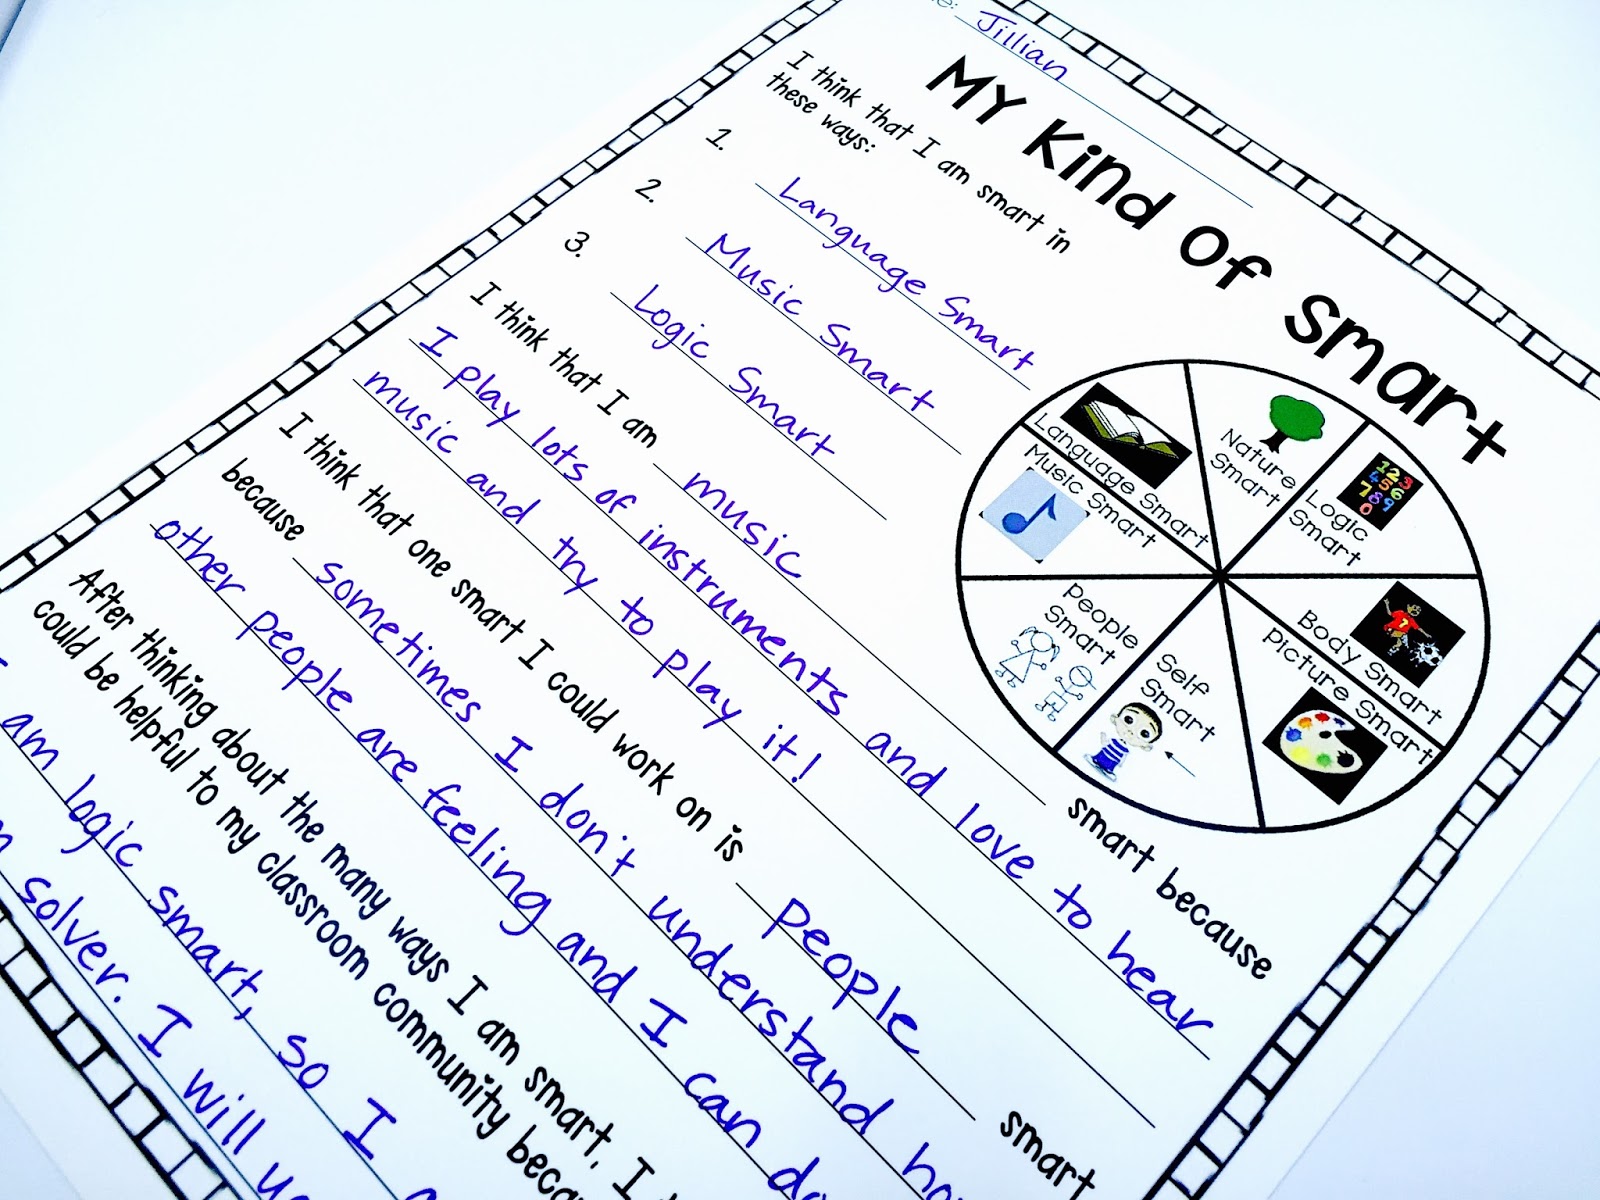 Jillian
MY Kind Of Smart
I think that I am smart in
these ways:
1. Language Smart
2. Music Smart
3. Logic Smart
Language Smart
Nature
Smart
Logic
Smart
Music Smart
Body Smart
People
Smart
Self
Smart
Picture Smart
I think that I am music smart because
I play lots of instruments and love to hear
music and try to play it!
I think that one smart I could work on is people smart
because sometimes I don't understand
other people are feeling and I can
After thinking about the many ways I am smart, I
could be helpful to my classroom community
am logic smart, so I
solver. I will